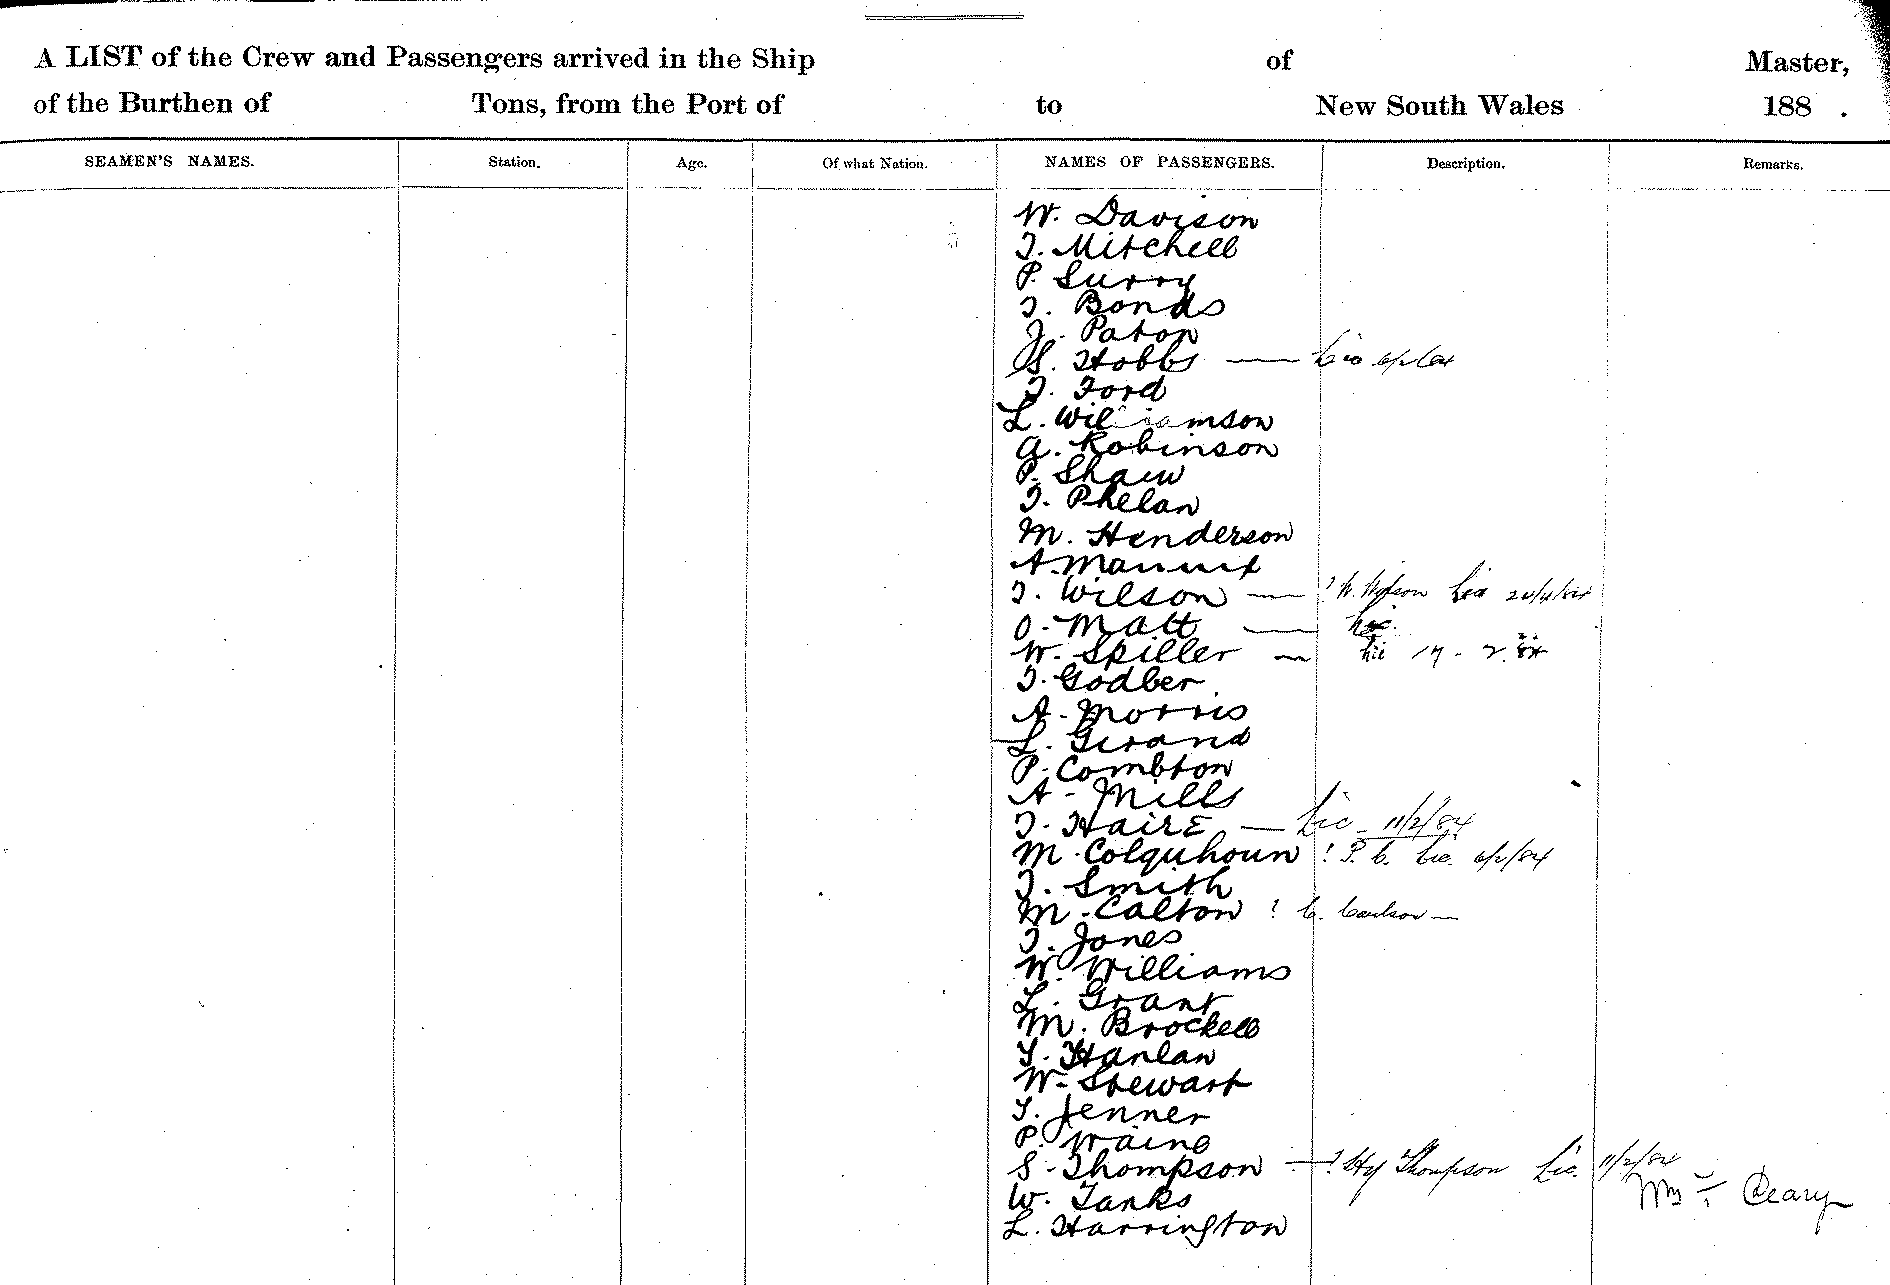 A LIST of the Crew and Passengers arrived in the Ship of Master,
of the Burthen of Tons, from the Port of to New South Wales 188 .
SEAMEN'S NAMES. Station. Age. Of what Nation. NAMES OF PASSENGERS. Description. Remarks.
W. Davison
T. Mitchell
P. Surry
T. Bonds
J. Paton
S. Hobbs — Lic 6/2/84
T. Ford
L. Williamson
G. Robinson
P. Shaw
T. Phelan
M. Henderson
A. Mannix
T. Wilson — ? W. Lic
O. Matt —
W. Spiller — Lic 17 - 2. 84
T. Godber
A. Morris
L. Girand
P. Combton
A. Mills
T. Haire — Lic - 11/2/84
M. Colquhoun ? P. C. Lic. 6/2/84
T. Smith
M. Calton ? C. Carlson —
T. Jones
W. Williams
L. Grant
M. Brockell
T. Hanlan
W. Stewart
T. Jenner
P. Waine
S. Thompson — ? Hy Thompson Lic. 11/2/84
W. Tanks Cleary
L. Harrington